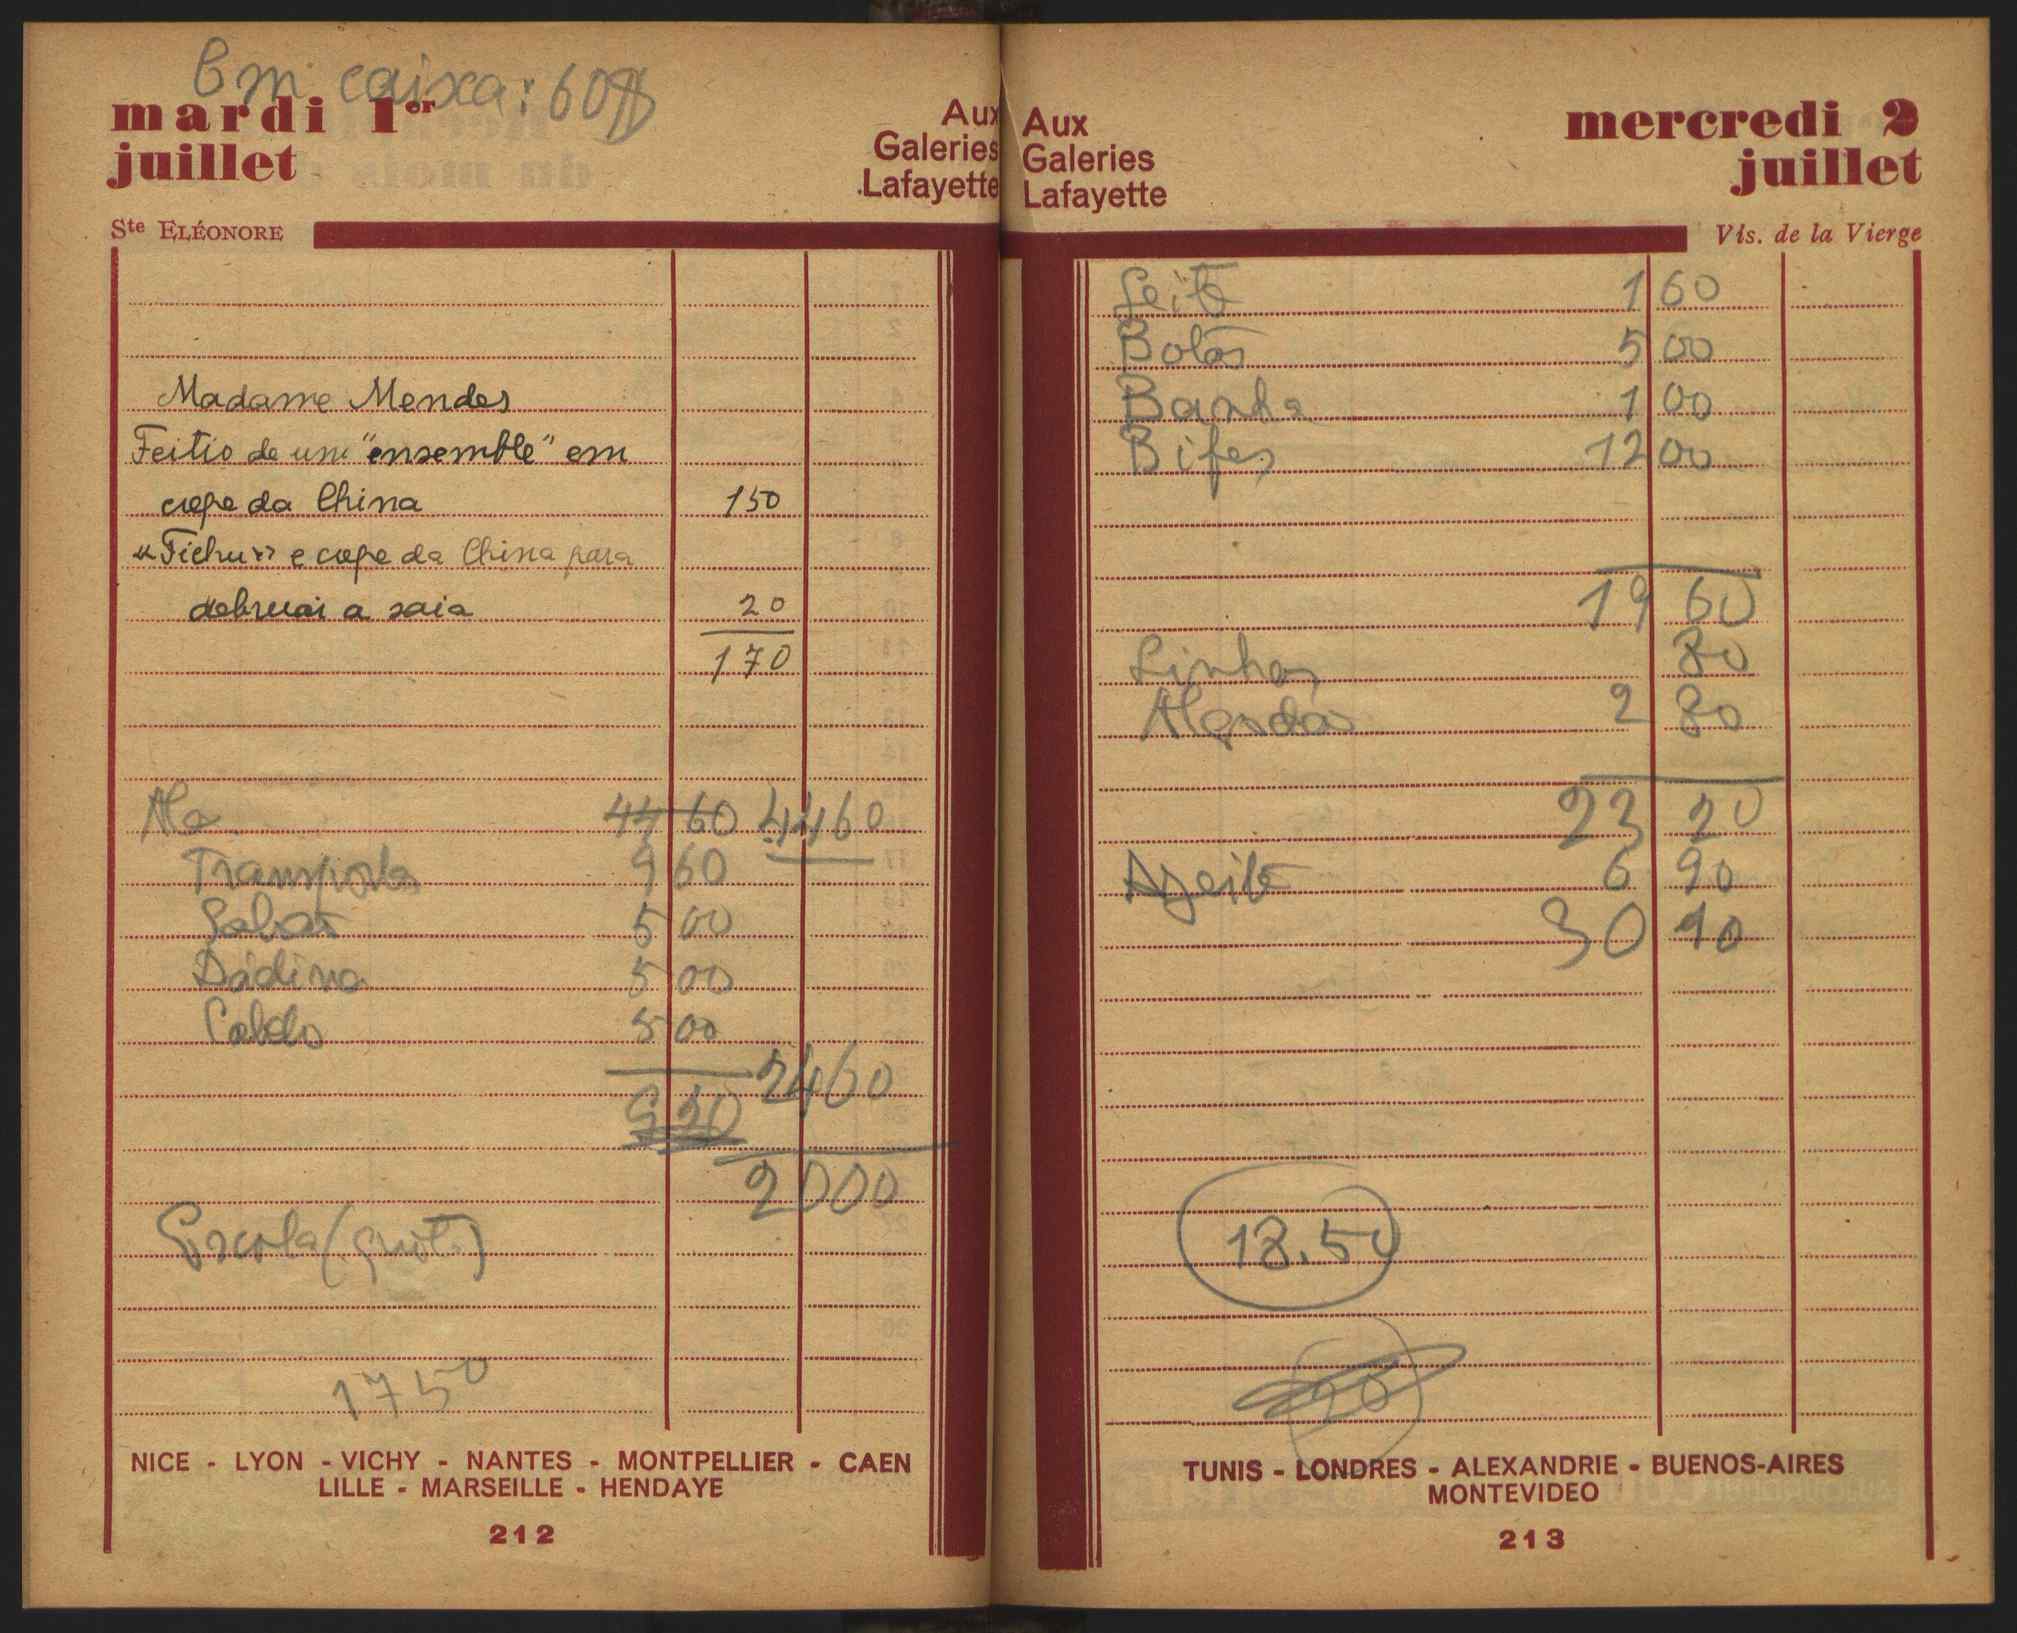 Em caixa: 60$
mardi 1er
juillet
Aux
Galeries
Lafayette
Ste ELÉONORE
Madame Mendes
Feitio de um "ensemble" em
crepe da China 150
«Fichu» e crepe da China para
debruar a saia 20
170
44 60 4460
Transportes 9 60
Sabão 5 00
Dádiva 5 00
Caldo 5 00
2460
2000
Escola
1750
NICE - LYON - VICHY - NANTES - MONTPELLIER - CAEN
LILLE - MARSEILLE - HENDAYE
212
Aux
Galeries
Lafayette
mercredi 2
juillet
Vis. de la Vierge
Leite 1 60
Bolos 5 00
Banha 1 00
Bifes 12 00
19 60
Linhas 80
Algodão 2 80
23 20
Azeite 6 90
30 10
18.50
20
TUNIS - LONDRES - ALEXANDRIE - BUENOS-AIRES
MONTEVIDEO
213